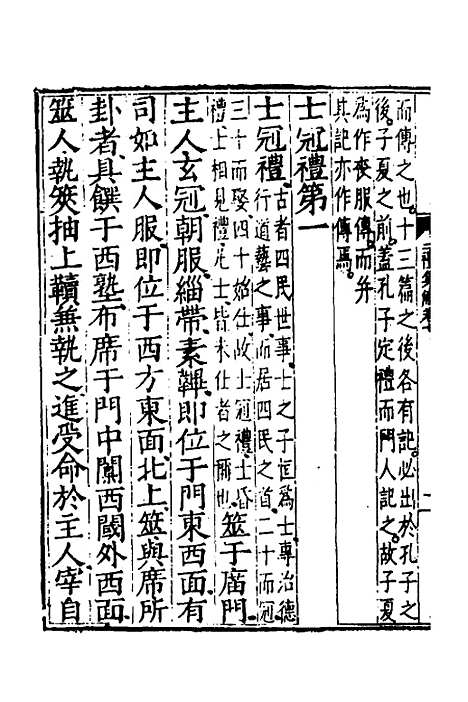 而傳之也十三篇之後各有記必出於孔子之
後子夏之前蓋孔子定禮而門人記之故子夏
爲作喪服傳而并
其記亦作傳焉
士冠禮第一
士冠禮古者四民世事士之子恒爲士專治德
行道藝之事而居四民之首二十而冠
三十而娶四十始仕故士冠禮士昏
禮士相見禮凡士皆未仕者之稱也筮于庿門
主人玄冠朝服緇帶素韠即位于門東西面有
司如主人服即位于西方東面北上筮與席所
卦者具饌于西塾布席于門中闑西閾外西面
筮人執筴抽上韇兼執之進受命於主人宰自